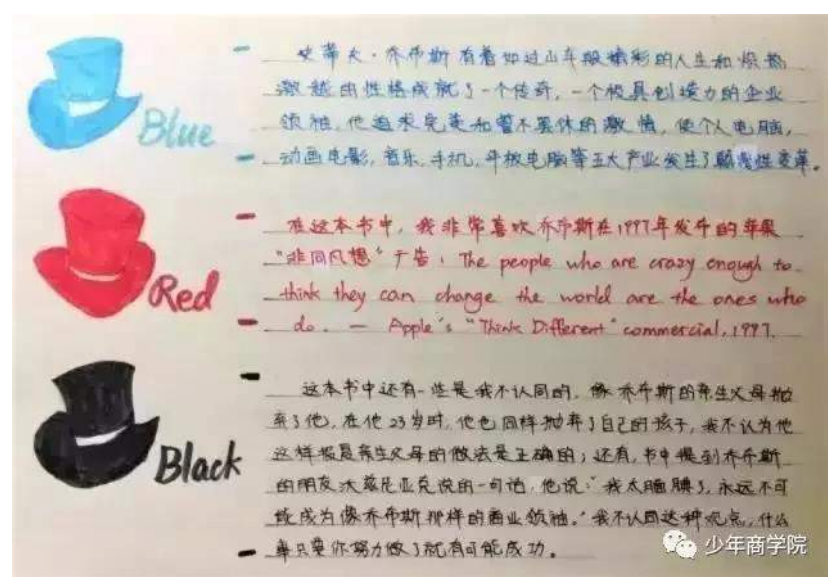 Blue
史蒂夫·乔布斯有着如过山车般精彩的人生和炽热
激越的性格成就了一个传奇，一个极具创造力的企业
领袖，他追求完美和誓不罢休的激情，使个人电脑，
动画电影，音乐，手机，平板电脑等五大产业发生了颠覆性变革。
Red
在这本书中，我非常喜欢乔布斯在1997年发布的苹果
"非同凡想"广告：The people who are crazy enough to
think they can change the world are the ones who
do. — Apple's "Think Different" commercial, 1997.
Black
这本书中还有一些是我不认同的，像乔布斯的亲生父母抛
弃了他，在他23岁时，他也同样抛弃了自己的孩子，我不认为他
这样报复亲生父母的做法是正确的；还有，书中提到乔布斯
的朋友沃兹尼亚克说的一句话，他说："我太腼腆了，永远不可
能成为像乔布斯那样的商业领袖。"我不认同这种观点，什么
事只要你努力做了就有可能成功。
少年商学院